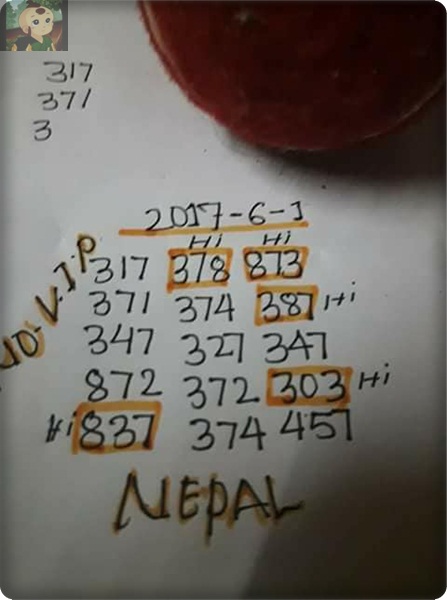 317
371
3
2017-6-1
Hi Hi
317 378 873
371 374 387 Hi
347 327 347
872 372 303 Hi
Hi 837 374 457
V.I.P
NEPAL